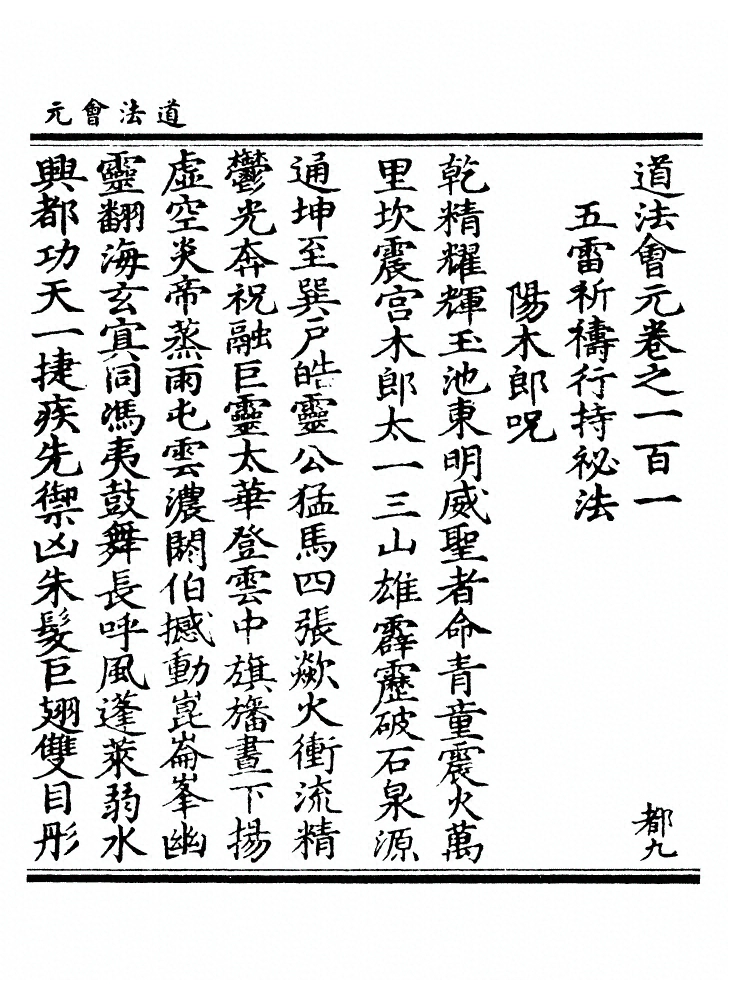 道法會元
道法會元卷之一百一 都九
五雷祈禱行持祕法
陽木郎呪
乾精耀輝玉池東明威聖者命青童震火萬
里坎震宮木郎太一三山雄霹靂破石泉源
通坤至巽戶皓靈公猛馬四張歘火衝流精
鬱光奔祝融巨靈太華登雲中旗旛晝下揚
虛空炎帝蒸雨屯雲濃閼伯撼動崑崙峯幽
靈翻海玄冥同馮夷鼓舞長呼風蓬萊弱水
興都功天一捷疾先禦凶朱髮巨翅雙目彤